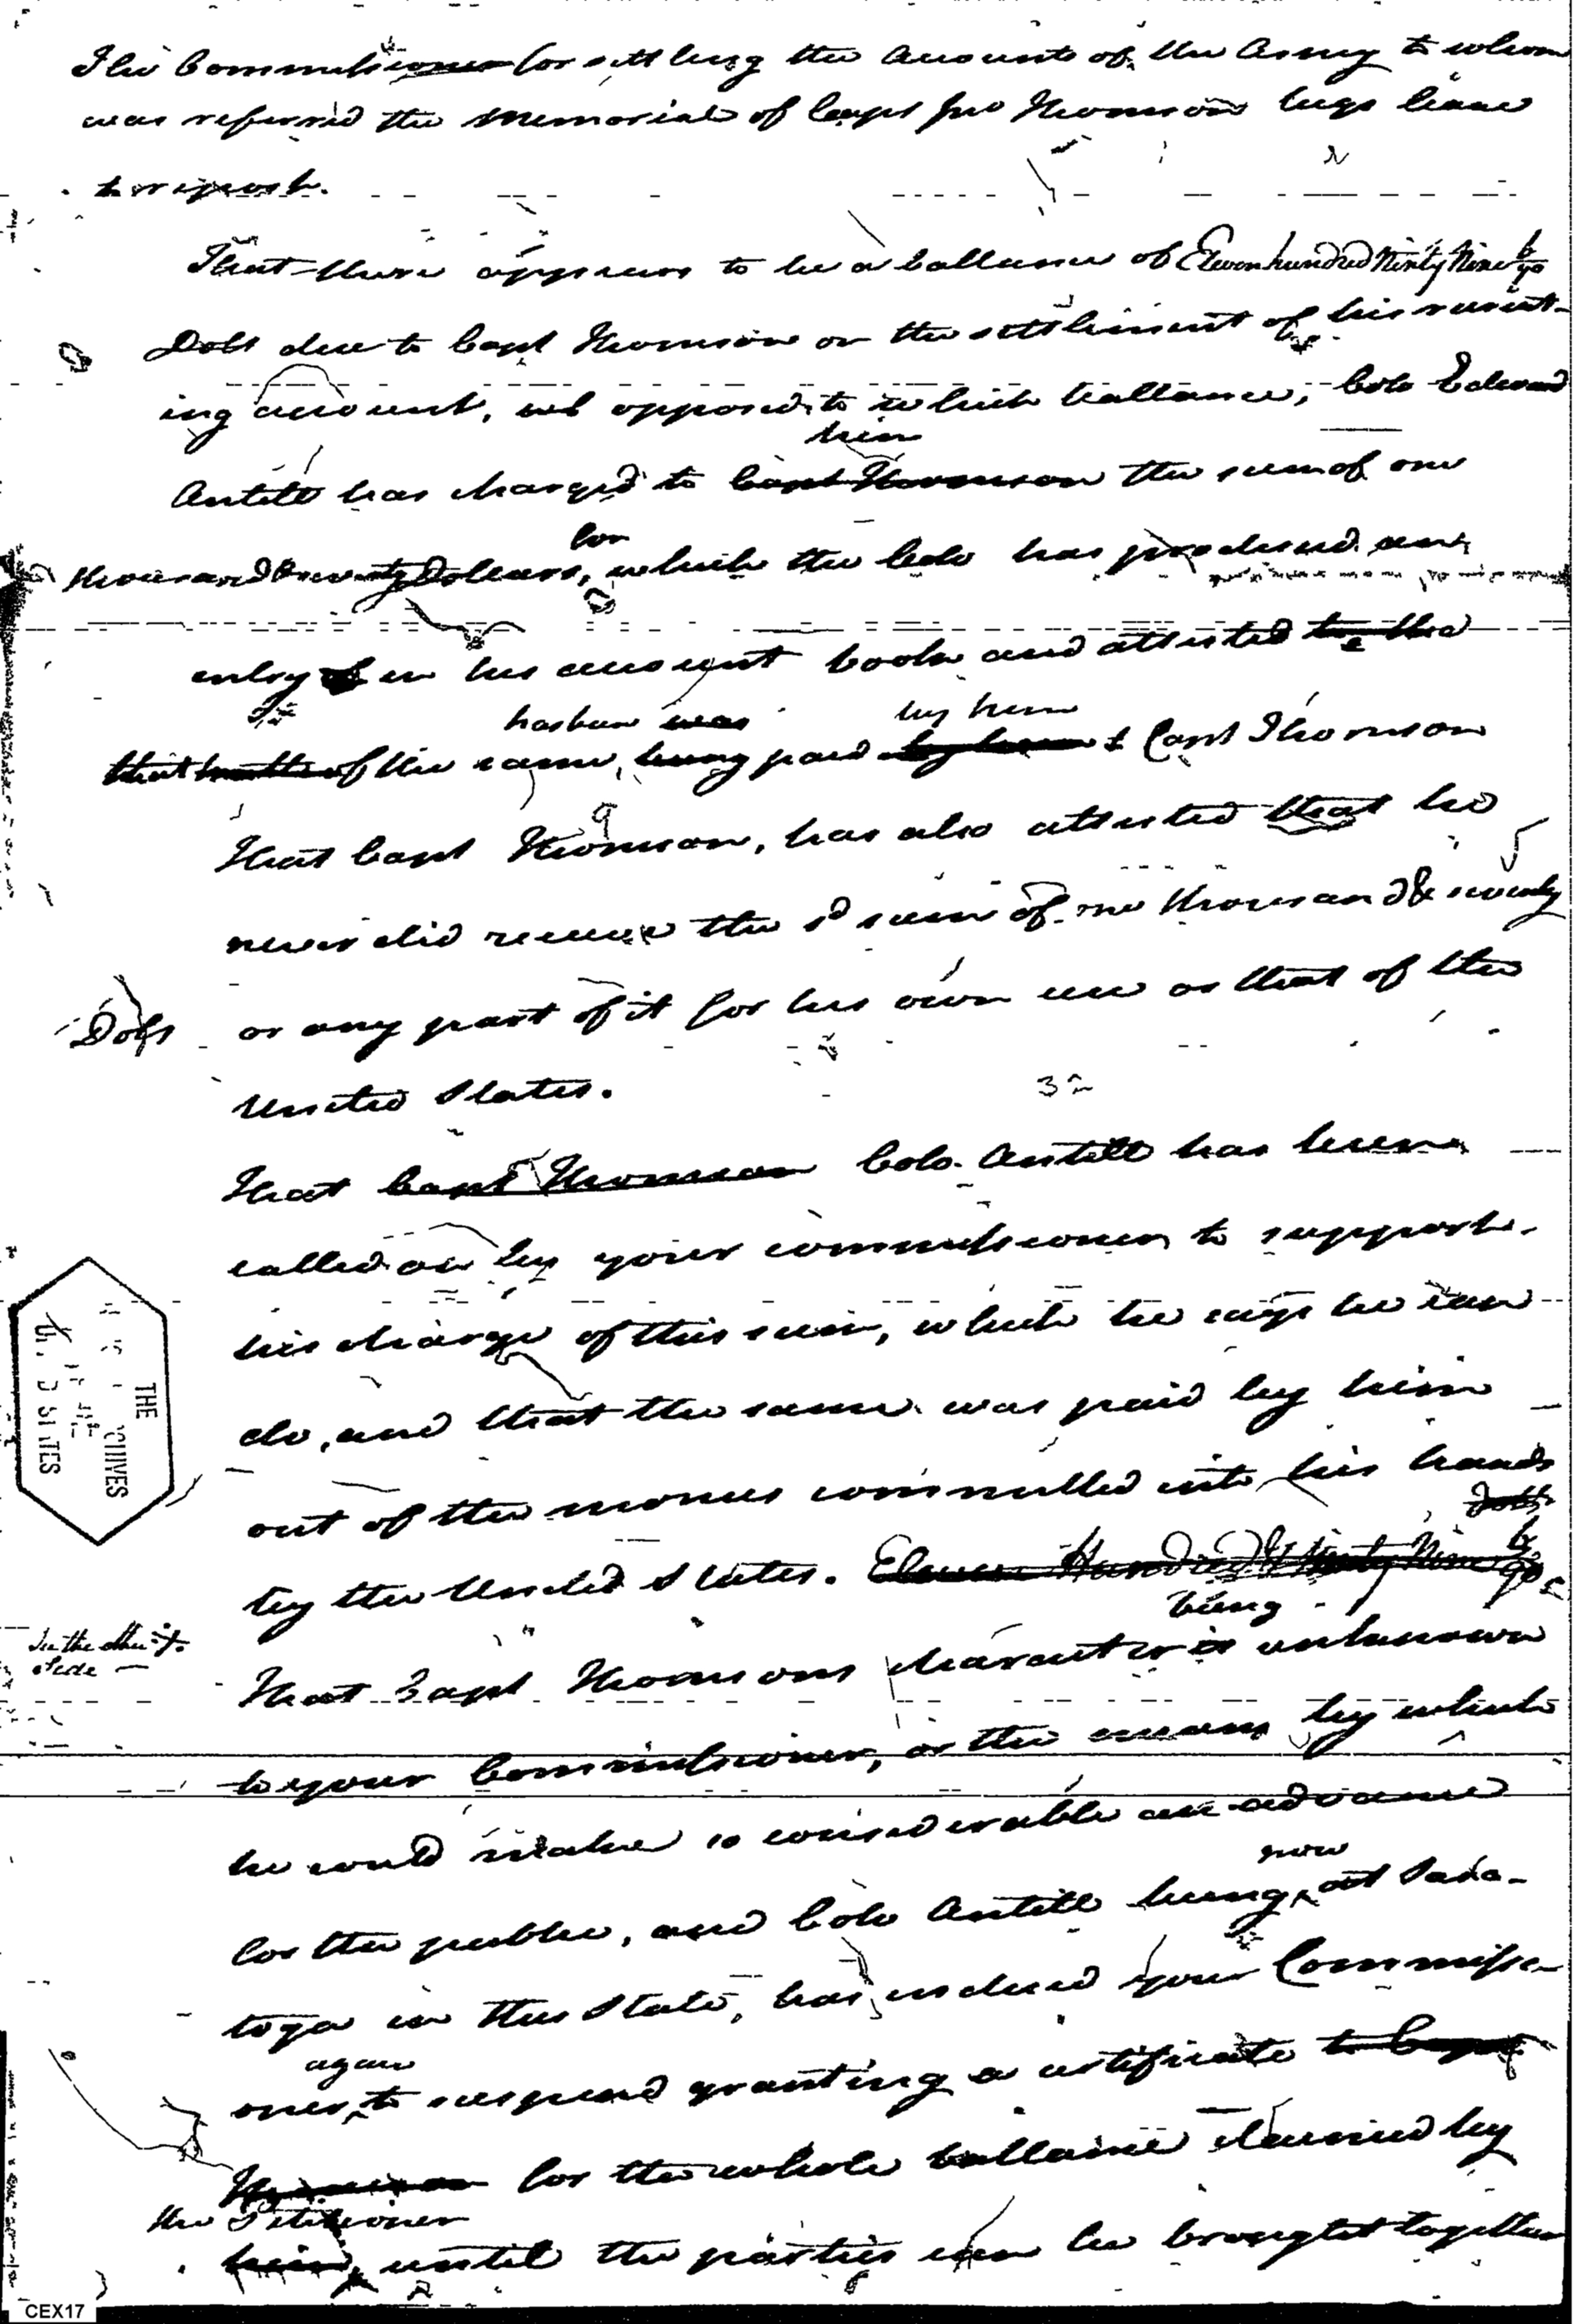 The Commissioner for settling the Accounts of the Army to whom
was referred the Memorial of Capt Jno Thomson begs leave
to report.
That there appears to be a ballance of Eleven hundred Ninty Nine 6/90
Dolls due to Capt Thomson on the settlement of his recruit-
ing account, opposed to which ballance, Colo Edward
him
Antill has charged to Capt Thomson the sum of one
for
thousand & seventy Dolears, which the Colo has produced an
entry in his account book and attested to the
has been was by him
that of the same, being paid by him to Capt Thomson
That Capt Thomson, has also attested that he
never did receive the sd sum of one thousand & seventy
Dols or any part of it for his own use or that of the
United States.
32
That Capt Thomson Colo. Antill has been
called on by your commissioner to support
his charge of this sum, which he says he can
do, and that the same was paid by him
out of the monies committed into his hands
Dolls
by the United States. Eleven Hundred & Ninty Nine 6/90
being
See the other side
That Capt Thomsons character is unknown
to your Commissioner, or the means by which
he could make so considerable an advance
now
for the public, and Colo Antill being at Sara-
toga in this State, has induced your Commissi-
again
oner, to suspend granting a certificate to Capt
Thomson for the whole ballance claimed by
the Petitioner
him, until the parties can be brought together
THE
ARCHIVES
CEX17